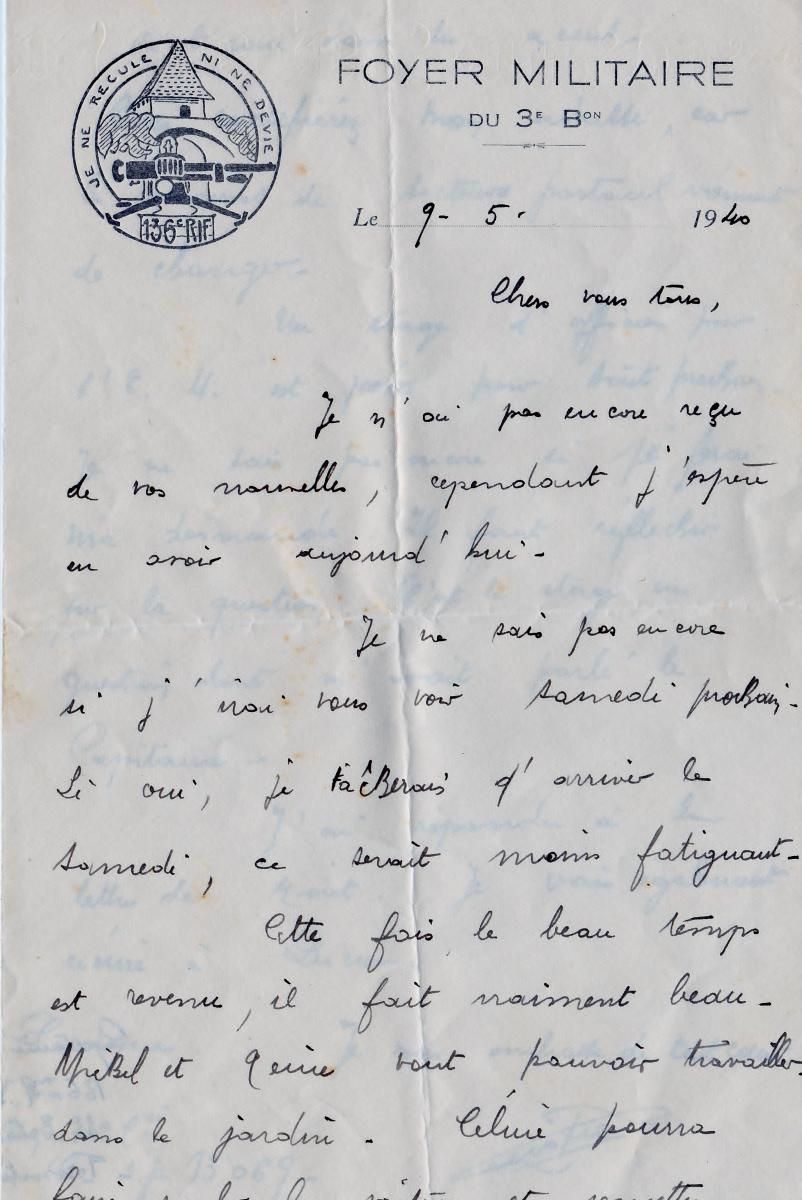 JE NE RECULE NI NE DEVIE
136e RIF
FOYER MILITAIRE
DU 3E BON
Le 9 - 5 - 1940
Chers vous tous,
Je n'ai pas encore reçu
de vos nouvelles, cependant j'espère
en avoir aujourd'hui -
Je ne sais pas encore
si j'irai vous voir samedi prochain -
Si oui, je tâcherais d'arriver le
samedi, ce serait moins fatiguant -
Cette fois le beau temps
est revenu, il fait vraiment beau -
et vont pouvoir travailler
dans le jardin - Céline pourra
et